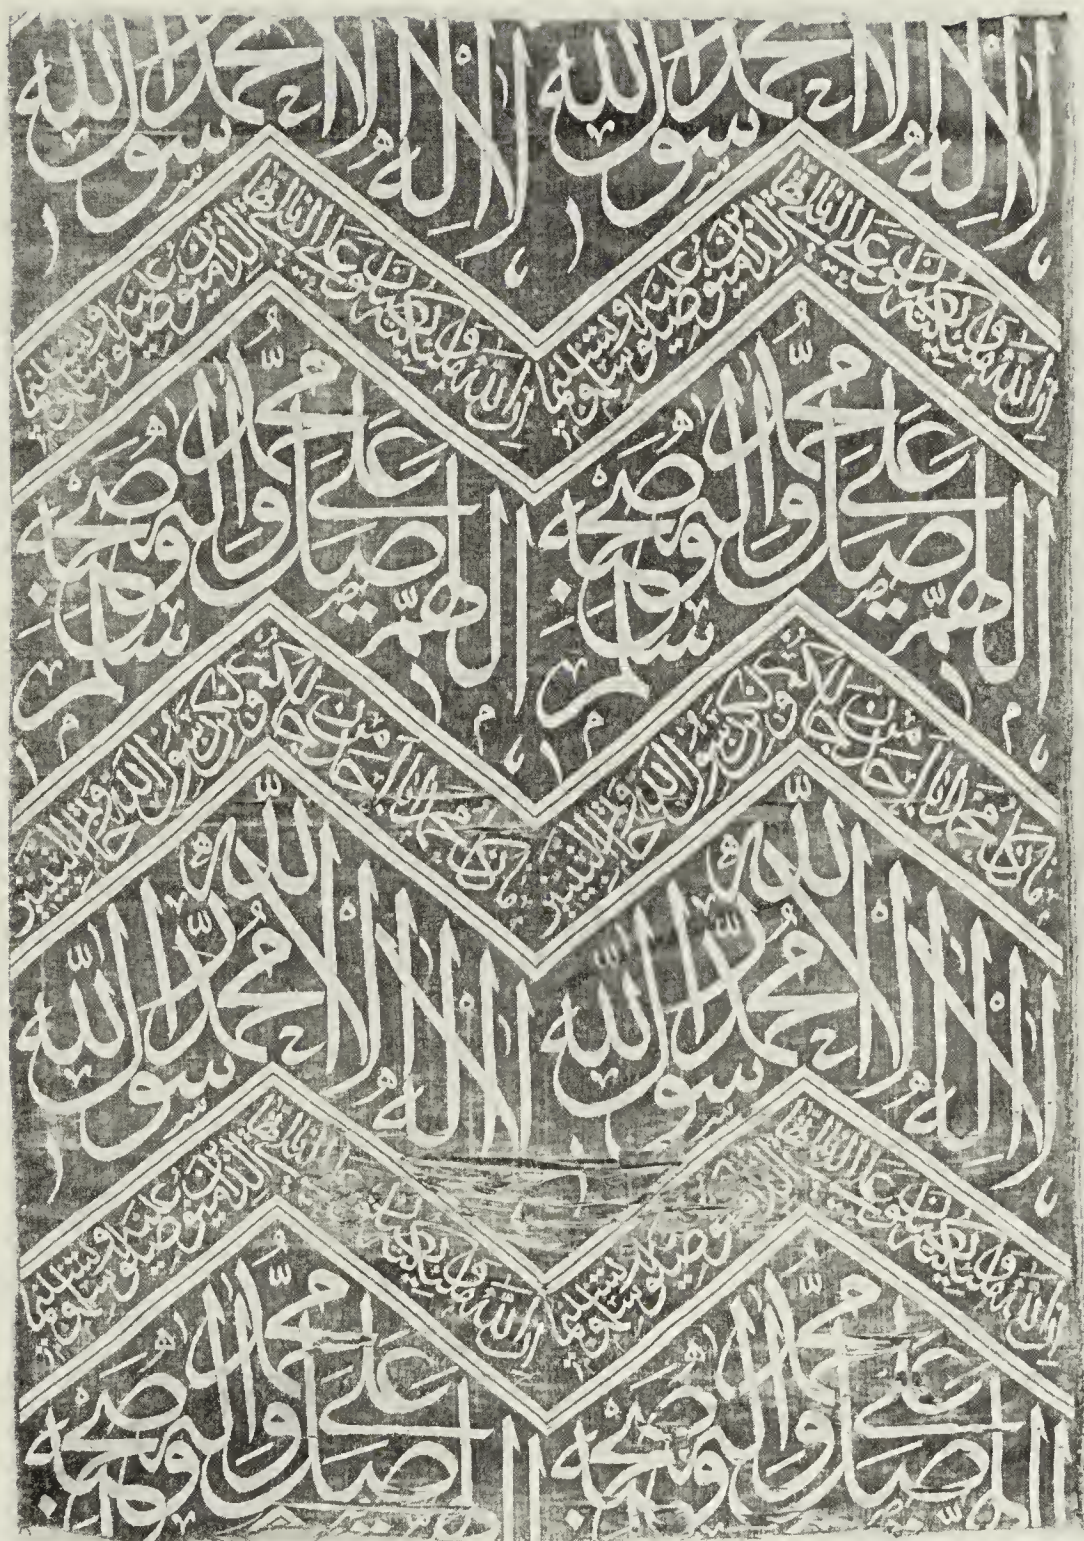 لا اله الا محمد رسول الله لا اله الا محمد رسول الله
ان الله وملائكته يصلون على النبي يا ايها الذين امنوا صلوا عليه وسلموا تسليما ان الله وملائكته يصلون على النبي يا ايها الذين امنوا صلوا عليه وسلموا تسليما
اللهم صل على محمد واله وصحبه وسلم اللهم صل على محمد واله وصحبه وسلم
ما كان محمد ابا احد من رجالكم ولكن رسول الله وخاتم النبيين ما كان محمد ابا احد من رجالكم ولكن رسول الله وخاتم النبيين
لا اله الا الله محمد رسول الله لا اله الا الله محمد رسول الله
ان الله وملائكته يصلون على النبي يا ايها الذين امنوا صلوا عليه وسلموا تسليما ان الله وملائكته يصلون على النبي يا ايها الذين امنوا صلوا عليه وسلموا تسليما
اللهم صل على محمد واله وصحبه اللهم صل على محمد واله وصحبه